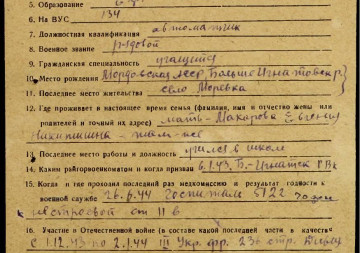 5. Образование
6. На ВУС 134
7. Должностная квалификация автоматчик
8. Военное звание рядовой
9. Гражданская специальность учащийся
10. Место рождения Мордовская АССР Больше Игнатовск. р.
11. Последнее место жительства село Моревка
12. Где проживает в настоящее время семья (фамилия, имя и отчество жены или
родителей и точный их адрес) мать - Макарова Евгения
Никитишна - там-же
13. Последнее место работы и должность учился в школе
14. Каким райгорвоенкоматом и когда призван 6.1.43 Б.-Игнатск. РВК
15. Когда и где проходил последний раз медкомиссию и результат годности к
военной службе 26.6.44 Госпиталь 5122 годен
к строевой ст II б
16. Участие в Отечественной войне (в составе какой последней части и в качестве
С 1.12.43 по 2.1.44 III Укр. фр. 236 стр. дивиз